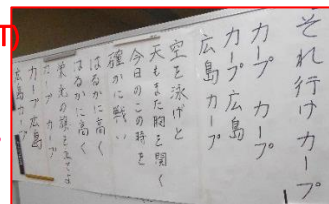 それ行けカープ
カープ カープ
カープ 広島
広島 カープ
空を泳げと
天もまた胸を開く
今日のこの時を
確かに戦い
はるかに高く
はるかに高く
栄光の旗を立てよ
カープ カープ
カープ 広島
広島 カープ